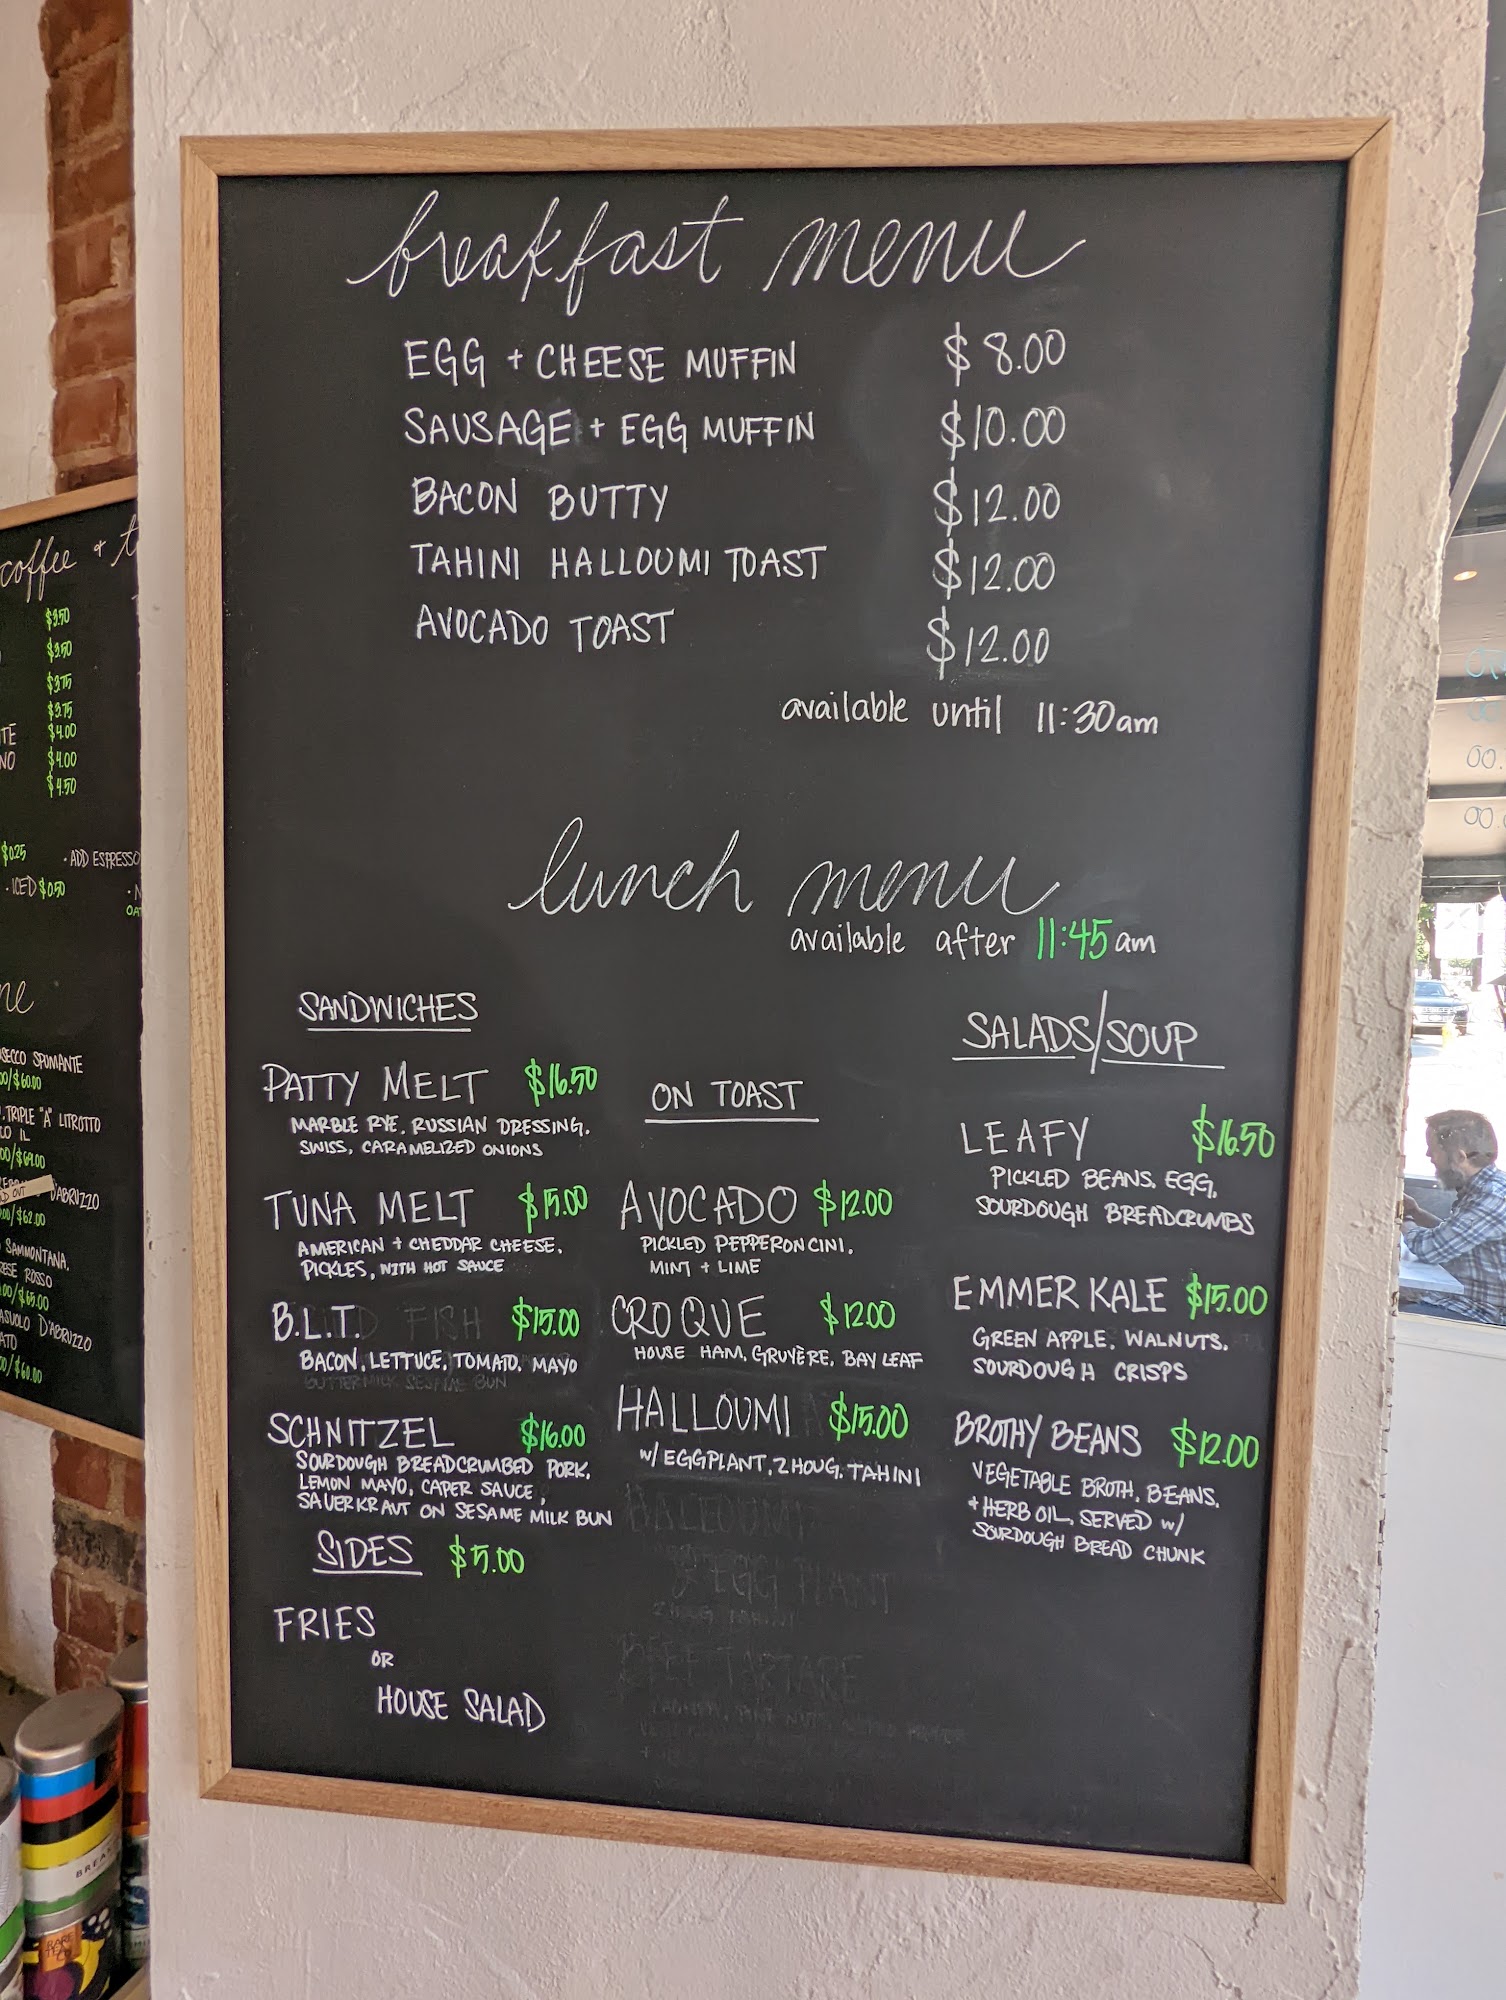 breakfast menu
EGG + CHEESE MUFFIN $8.00
SAUSAGE + EGG MUFFIN $10.00
BACON BUTTY $12.00
TAHINI HALLOUMI TOAST $12.00
AVOCADO TOAST $12.00
available until 11:30am
lunch menu
available after 11:45am
SANDWICHES
PATTY MELT $16.50
MARBLE RYE, RUSSIAN DRESSING,
SWISS, CARAMELIZED ONIONS
TUNA MELT $15.00
AMERICAN + CHEDDAR CHEESE,
PICKLES, WITH HOT SAUCE
B.L.T. $15.00
BACON, LETTUCE, TOMATO, MAYO
SCHNITZEL $16.00
SOURDOUGH BREADCRUMBED PORK,
LEMON MAYO, CAPER SAUCE,
SAUERKRAUT ON SESAME MILK BUN
SIDES $5.00
FRIES
OR
HOUSE SALAD
ON TOAST
AVOCADO $12.00
PICKLED PEPPERONCINI,
MINT + LIME
CROQUE $12.00
HOUSE HAM, GRUYÈRE, BAY LEAF
HALLOUMI $15.00
w/ EGGPLANT, ZHOUG, TAHINI
SALADS/SOUP
LEAFY $16.50
PICKLED BEANS, EGG,
SOURDOUGH BREADCRUMBS
EMMER KALE $15.00
GREEN APPLE, WALNUTS,
SOURDOUGH CRISPS
BROTHY BEANS $12.00
VEGETABLE BROTH, BEANS,
+ HERB OIL, SERVED w/
SOURDOUGH BREAD CHUNK
coffee +
$3.50
$3.50
$3.75
$3.75
$4.00
$4.00
$4.50
$0.25 · ADD ESPRESSO
· ICED $0.50
SPUMANTE
/$60.00
TRIPLE "A" LITROTTO
IL
/$69.00
OUT
D'ABRUZZO
/$62.00
SAMMONTANA,
ROSSO
/$65.00
D'ABRUZZO
/$60.00
RARE
TEA